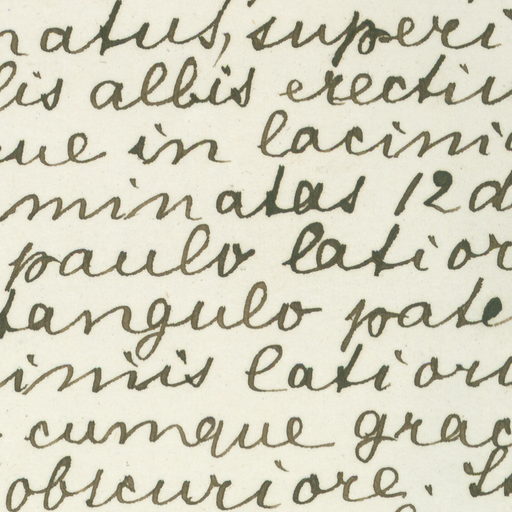 natus, superi
lis albis erectiu
que in lacini
minatas 12 d
paulo latior
tangulo pate
imis latior
cumque grac
obscuriore. St